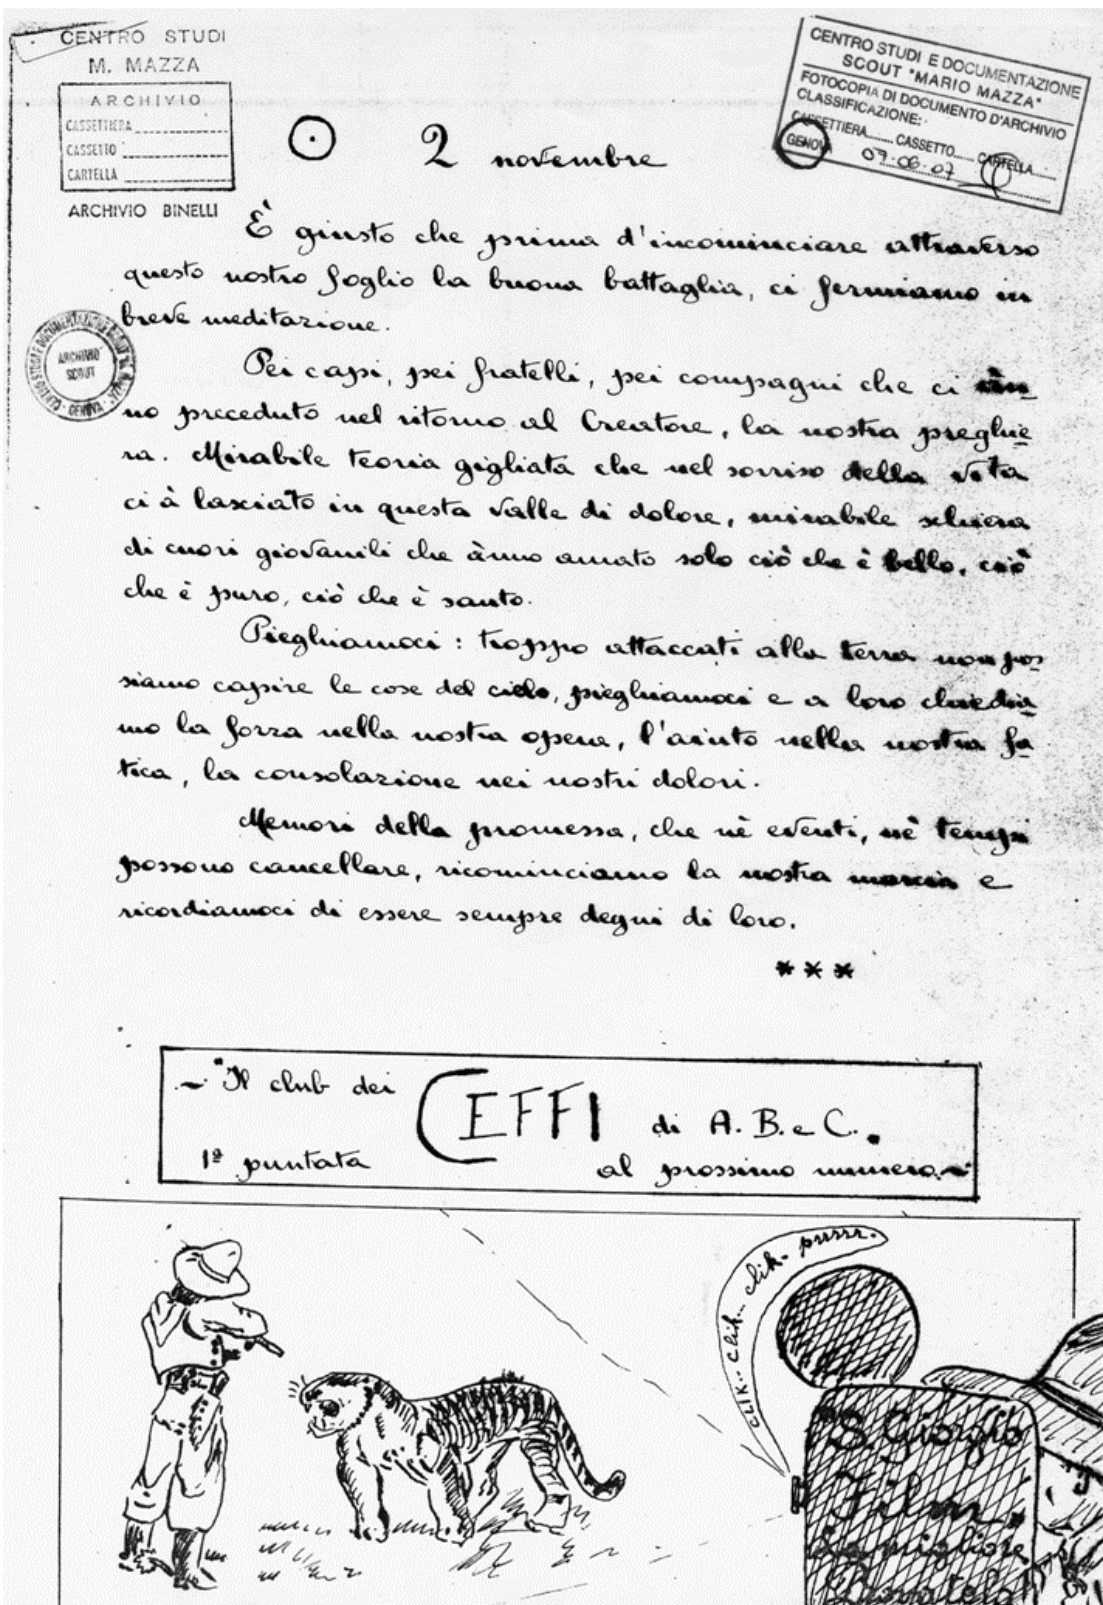 CENTRO STUDI
M. MAZZA
ARCHIVIO
CASSETTIERA
CASSETTO
CARTELLA
ARCHIVIO BINELLI
CENTRO STUDI E DOCUMENTAZIONE
SCOUT "MARIO MAZZA"
FOTOCOPIA DI DOCUMENTO D'ARCHIVIO
CLASSIFICAZIONE:
CASSETTIERA...... CASSETTO..... CARTELLA.....
GENOVA 07-06-07
2 novembre
È giusto che prima d'incominciare attraverso
questo nostro foglio la buona battaglia, ci fermiamo in
breve meditazione.
ARCHIVIO
SCOUT
GENOVA
Pei capi, pei fratelli, pei compagni che ci àn
no preceduto nel ritorno al Creatore, la nostra preghie
ra. Mirabile teoria gigliata che nel sorriso della vita
ci à lasciato in questa valle di dolore, mirabile schiera
di cuori giovanili che ànno amato solo ciò che è bello, ciò
che è puro, ciò che è santo.
Pieghiamoci: troppo attaccati alla terra non pos
siamo capire le cose del cielo, pieghiamoci e a loro chiedia
mo la forza nella nostra opera, l'aiuto nella nostra fa
tica, la consolazione nei nostri dolori.
Memori della promessa, che nè eventi, nè tempi
possono cancellare, ricominciamo la nostra marcia e
ricordiamoci di essere sempre degni di loro.
***
"Il club dei CEFFI di A. B. e C.
1ª puntata al prossimo numero
clik.. clik... clik.. purrr.
"S. Giorgio
Film"
La migliore